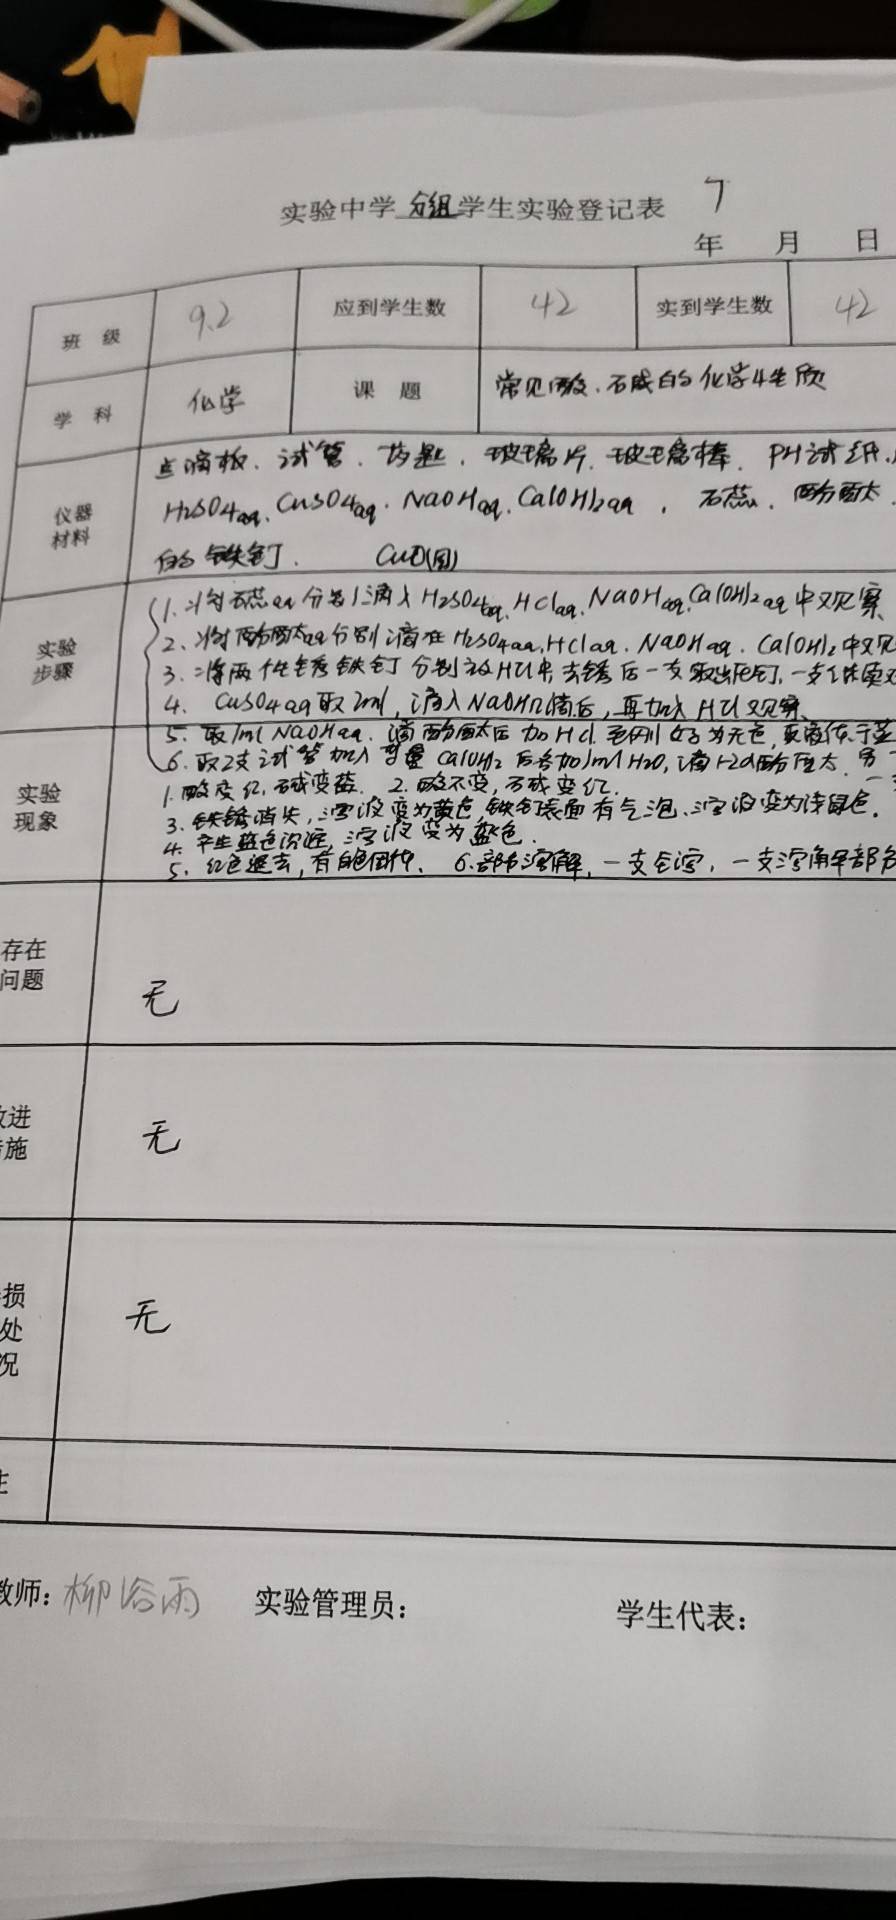 实验中学 分组 学生实验登记表 7
年 月 日
班 级 9.2 应到学生数 42 实到学生数 42
学 科 化学 课 题 常见酸、碱的化学性质
仪器材料
点滴板、试管、药匙、玻璃片、玻璃棒、PH试纸、
H2SO4aq、CuSO4aq、NaOHaq、Ca(OH)2aq、石蕊、酚酞
的铁钉、 CuO(固)
实验步骤
1. 将石蕊aq分别滴入H2SO4aq、HClaq、NaOHaq、Ca(OH)2aq中观察
2. 将酚酞aq分别滴在H2SO4aq、HClaq、NaOHaq、Ca(OH)2中观
3. 将两个生锈铁钉分别放HCl中，去锈后一支取出铁钉，一支继续
4. CuSO4aq取2ml，滴入NaOH滴后，再加入HCl观察
5. 取1ml NaOHaq，滴酚酞后加HCl至刚好为无色，取液体于蒸
6. 取2支试管加入Ca(OH)2后各加1ml H2O，滴1-2d酚酞，另一
实验现象
1. 酸变红，碱变蓝. 2. 酸不变，碱变红.
3. 铁锈消失，溶液变为黄色，铁钉表面有气泡、溶液变为浅绿色.
4. 产生蓝色沉淀，溶液变为蓝色.
5. 红色褪去，有白色固体、 6. 部分溶解，一支全溶，一支溶解部分
存在问题
无
改进措施
无
损
处
况
无
教师：柳谷雨 实验管理员： 学生代表：